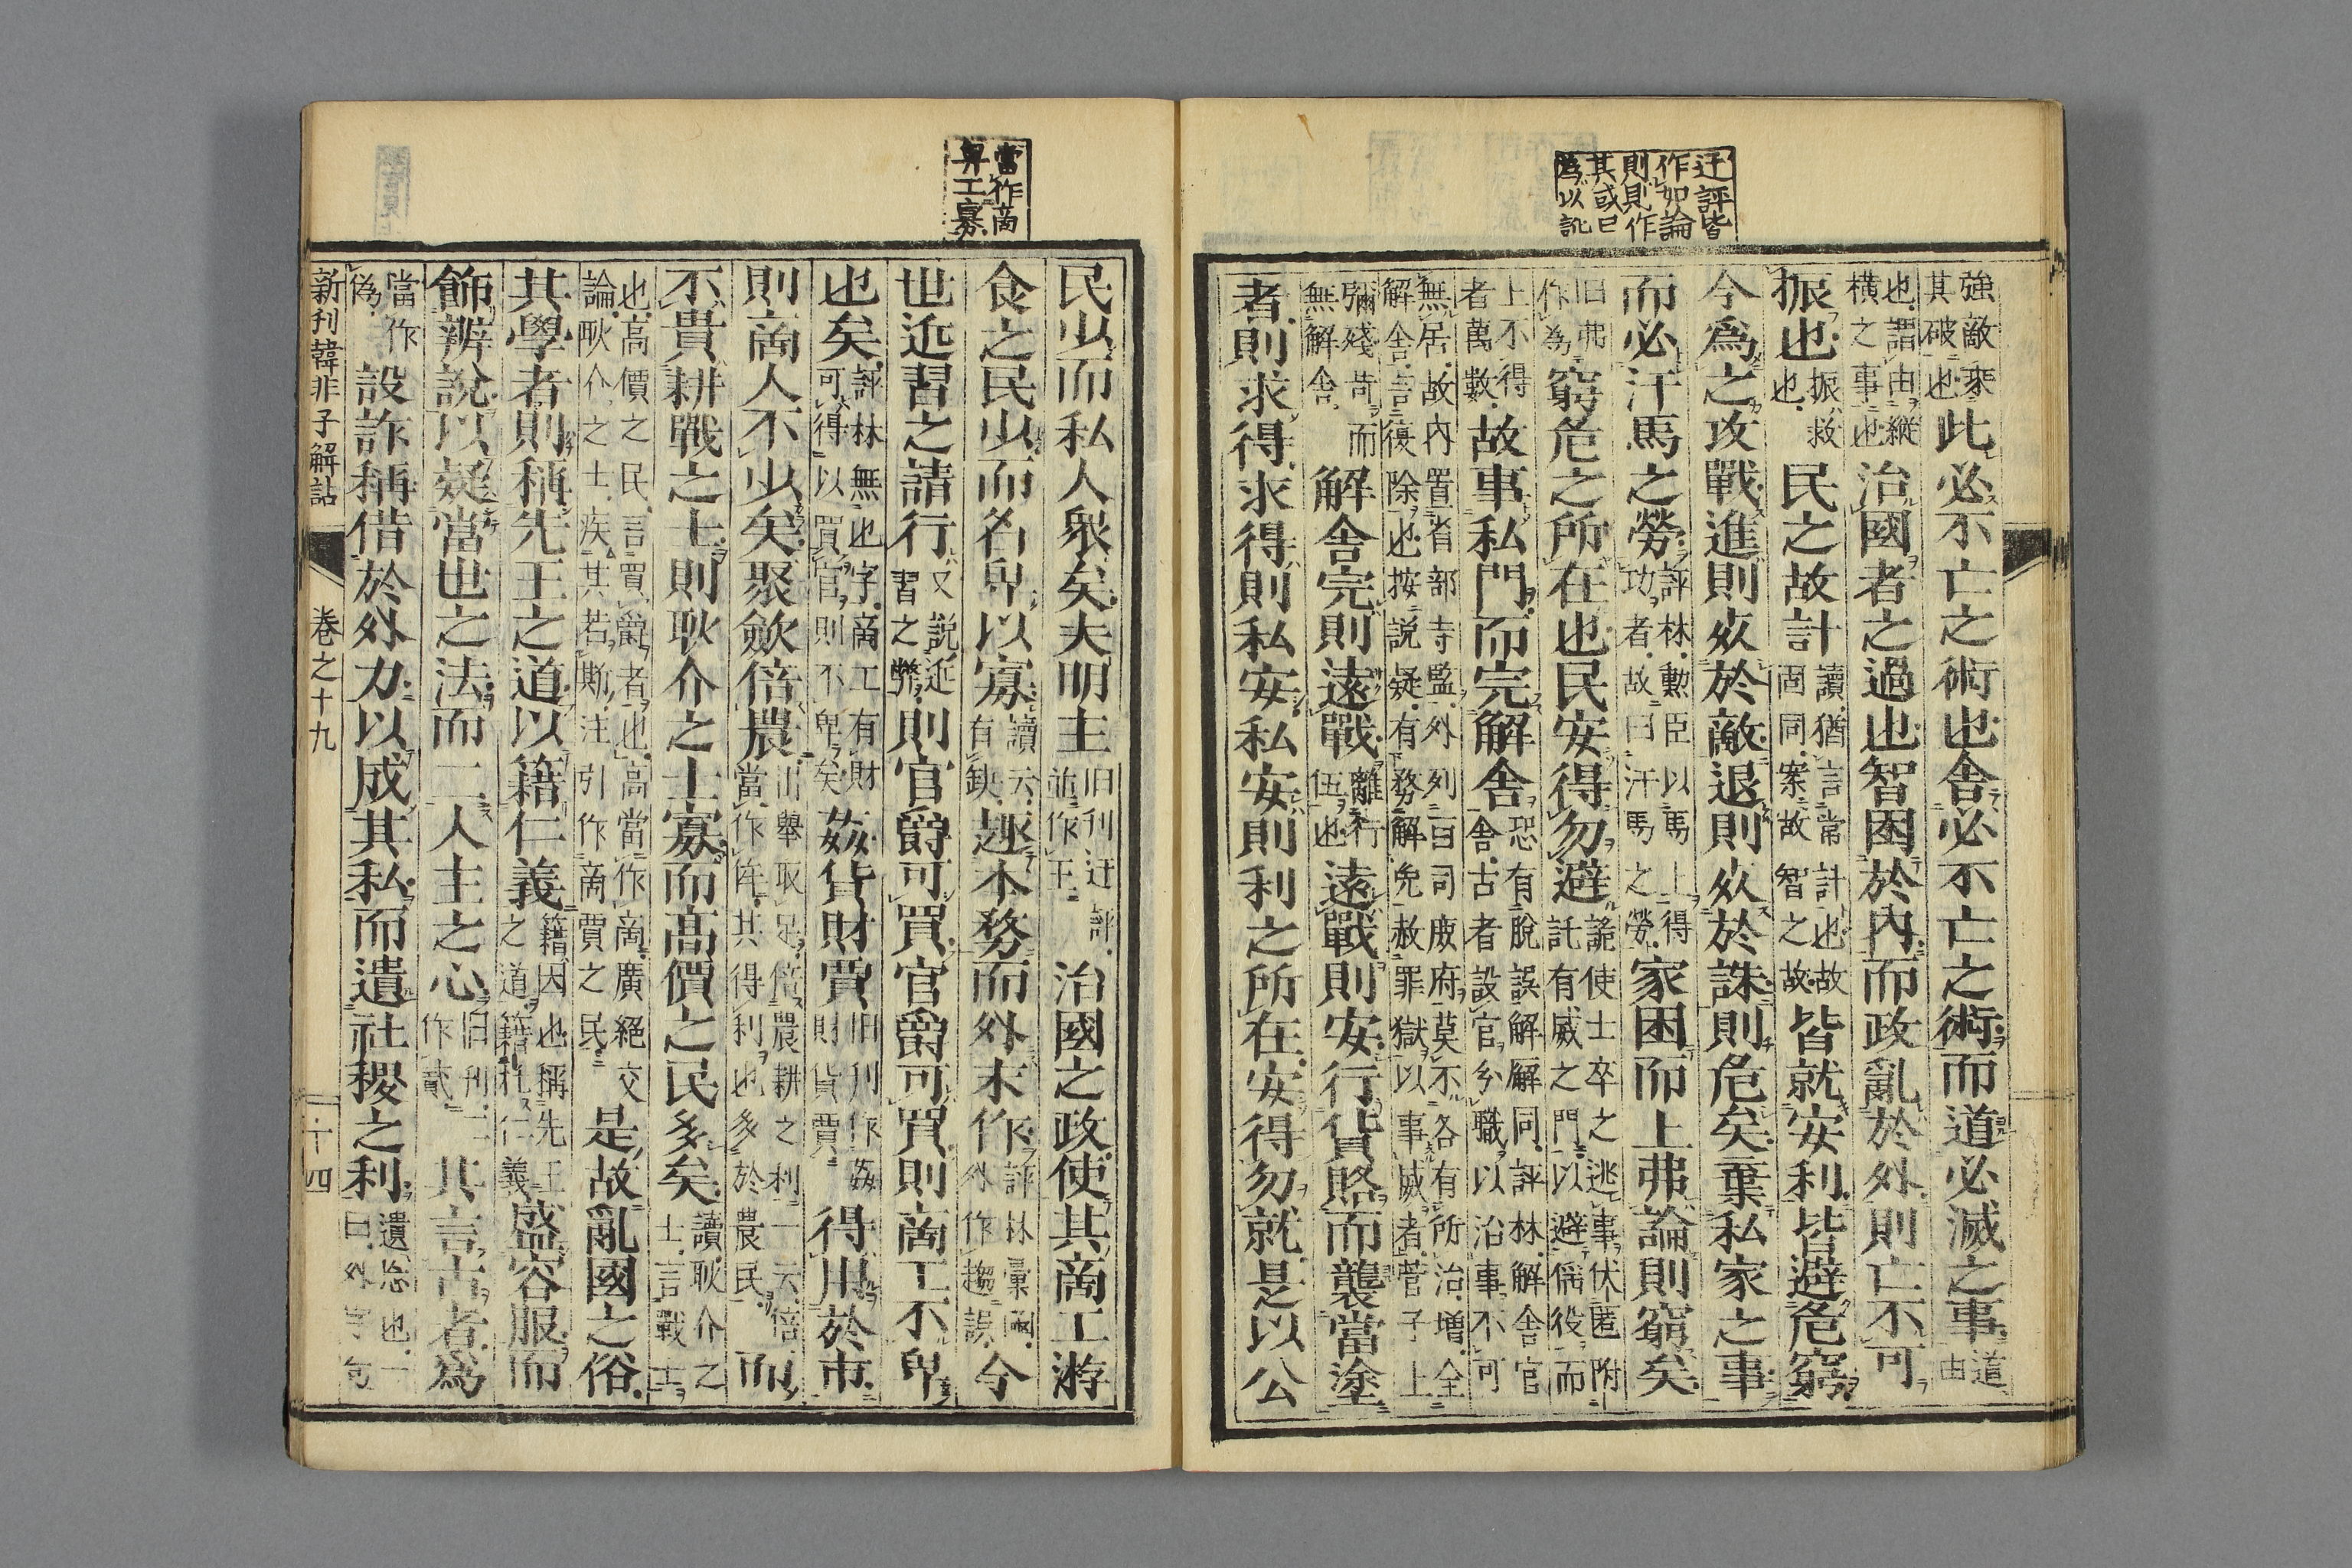 迂評皆
作如論
則見作
其或曰
為以訛
強敵乘其破也此必不亡之術也舍必不亡之術而道必滅之事道由
也謂由縱橫之事也治國者之過也智困於內而政亂於外則亡不可
振也振救也民之故計讀猶言常計也故固同案故智之故皆就安利皆避危窮
今爲之攻戰進則死於敵退則死於誅則危矣棄私家之事
而必汗馬之勞評林勲臣以馬上得功者故曰汗馬之勞家困而上弗論則窮矣
旧弗作為窮危之所在也民安得勿避詭使士卒之逃事伏匿附託有威之門以避徭役而
上不得者萬數故事私門而完解舍恐有脫誤解廨同評林解舍官舍古者設官分職以治事不可
無居故內置省部寺監外列百司庶府莫不各有所治增仝解舍言復除也按說疑有務解免赦罪獄以事威者管子上
彌殘苛而無解舍解舍完則遠戰離行伍也遠戰則安行貨賂而襲當塗
者則求得求得則私安私安則利之所在安得勿就是以公
當作商
卑工寡
民少而私人衆矣夫明主旧刊迂評並作王治國之政使其商工游
食之民少而名卑以寡讀云有缺趣本務而外末作評林彙函外作趨誤今
世近習之請行又說近習之弊則官爵可買官爵可買則商工不卑
也矣評林無也字商工有財可得以買官則不卑矣姦貨財賈旧刊作姦財貨賈得用於市
則商人不少矣聚斂倍農山舉取足倍農耕之利一云倍當作其得利也多於農民而
不貴耕戰之士則耿介之士寡而高價之民多矣讀耿介之士言戰士
也高價之民言買爵者也高當作商廣絕交論耿介之士疾其若斯注引作商賈之民是故亂國之俗
其學者則稱先王之道以籍仁義籍因也稱先王之道籍託仁義盛容服而
飾辨說以疑當世之法而二人主之心旧刊二作貳其言古者爲
當作偽設詐稱借於外力以成其私而遺社稷之利遺忘也一曰外字句
新刊韓非子解詁 卷之十九 二十四